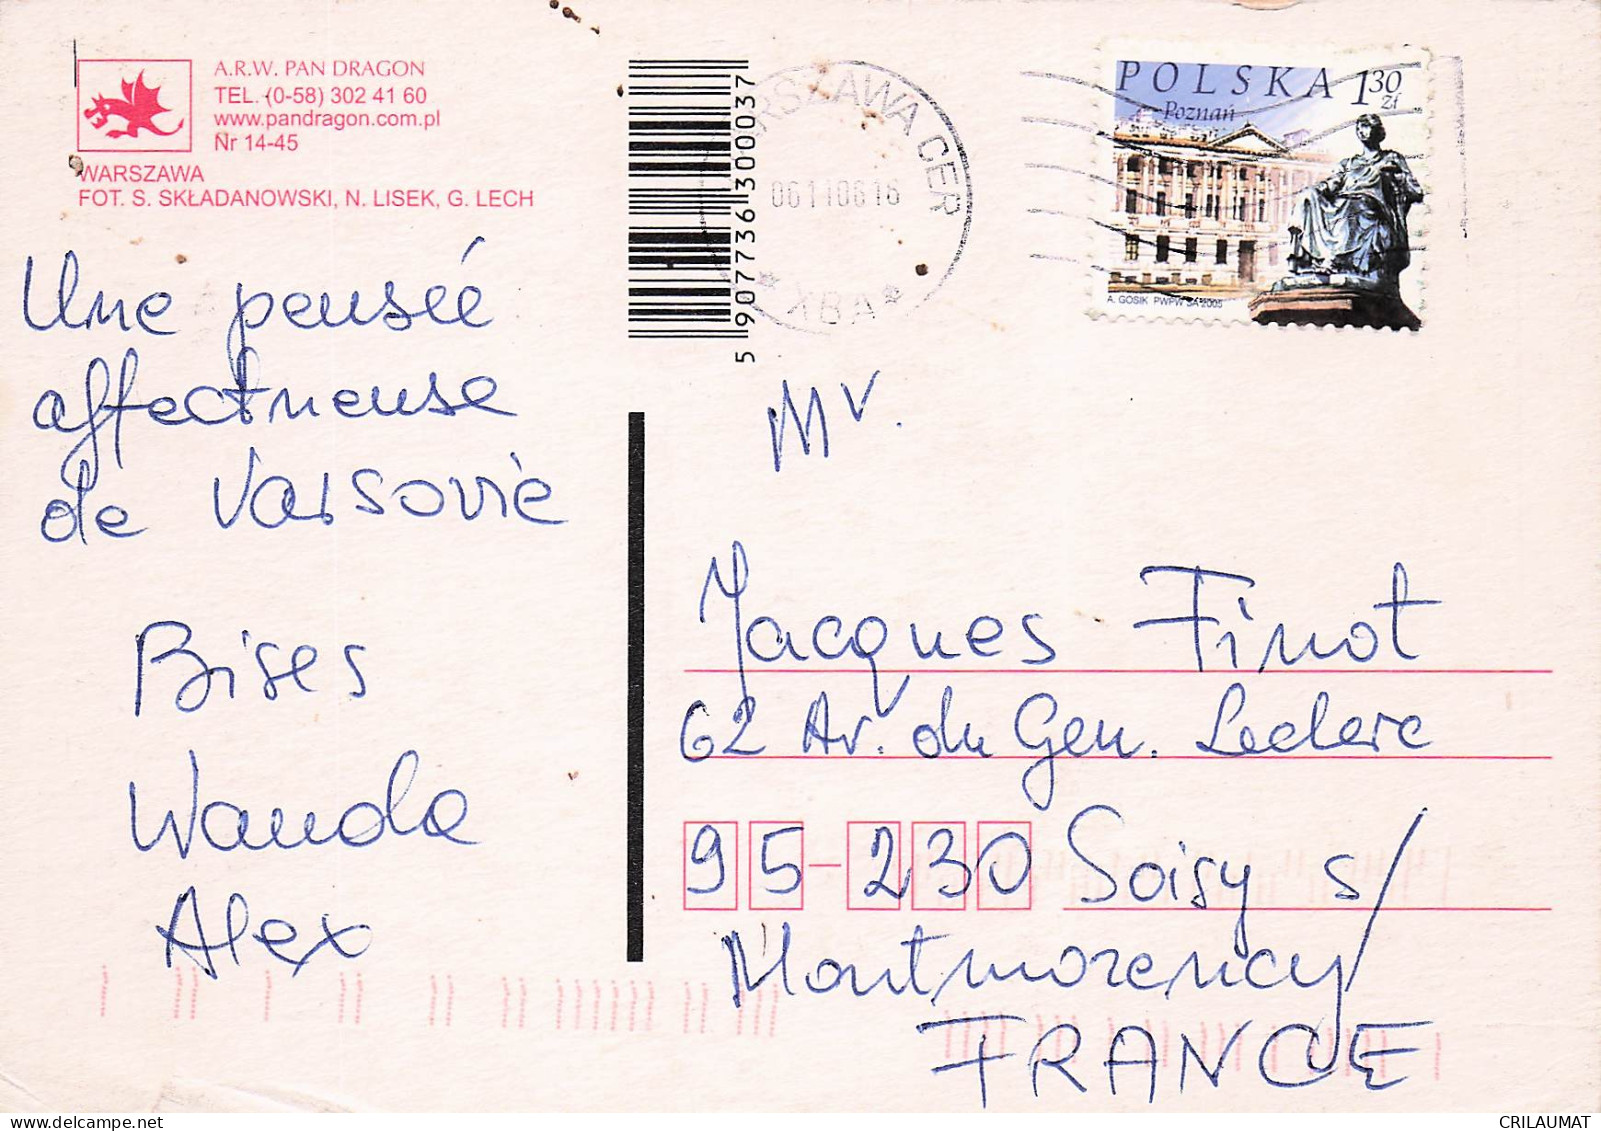 A.R.W. PAN DRAGON
TEL. (0-58) 302 41 60
www.pandragon.com.pl
Nr 14-45
WARSZAWA
FOT. S. SKŁADANOWSKI, N. LISEK, G. LECH
Une pensée
affectueuse
de Varsovie
Bises
Wanda
Alex
5 907736 300037
RSZAWA CER
XBA
POLSKA 1,30 zł
Poznań
A. GOSIK PWPW SA 2005
Mr.
Jacques Finot
62 Av. du Gen. Leclerc
95-230 Soisy s/
Montmorency
FRANCE
CRILAUMAT